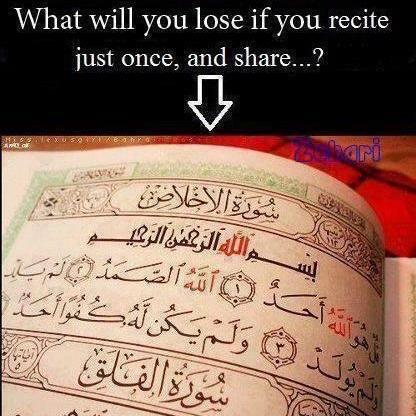 What will you lose if you recite
just once, and share...?
Zahari
سُورَةُ الْإِخْلَاصِ
بِسْمِ اللَّهِ الرَّحْمَٰنِ الرَّحِيمِ
قُلْ هُوَ اللَّهُ أَحَدٌ ١ اللَّهُ الصَّمَدُ ٢ لَمْ يَلِدْ
وَلَمْ يُولَدْ ٣ وَلَمْ يَكُن لَّهُ كُفُوًا أَحَدٌ
سُورَةُ الْفَلَقِ